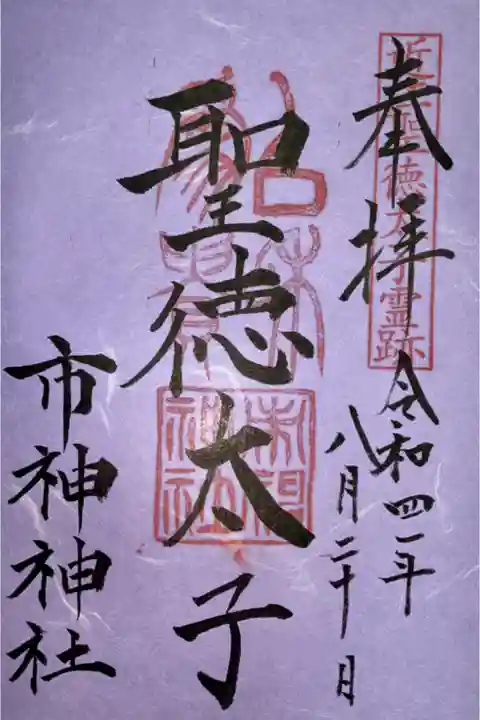 奉拝
聖徳太子霊跡
令和四年
八月二十日
聖徳太子
市神神社